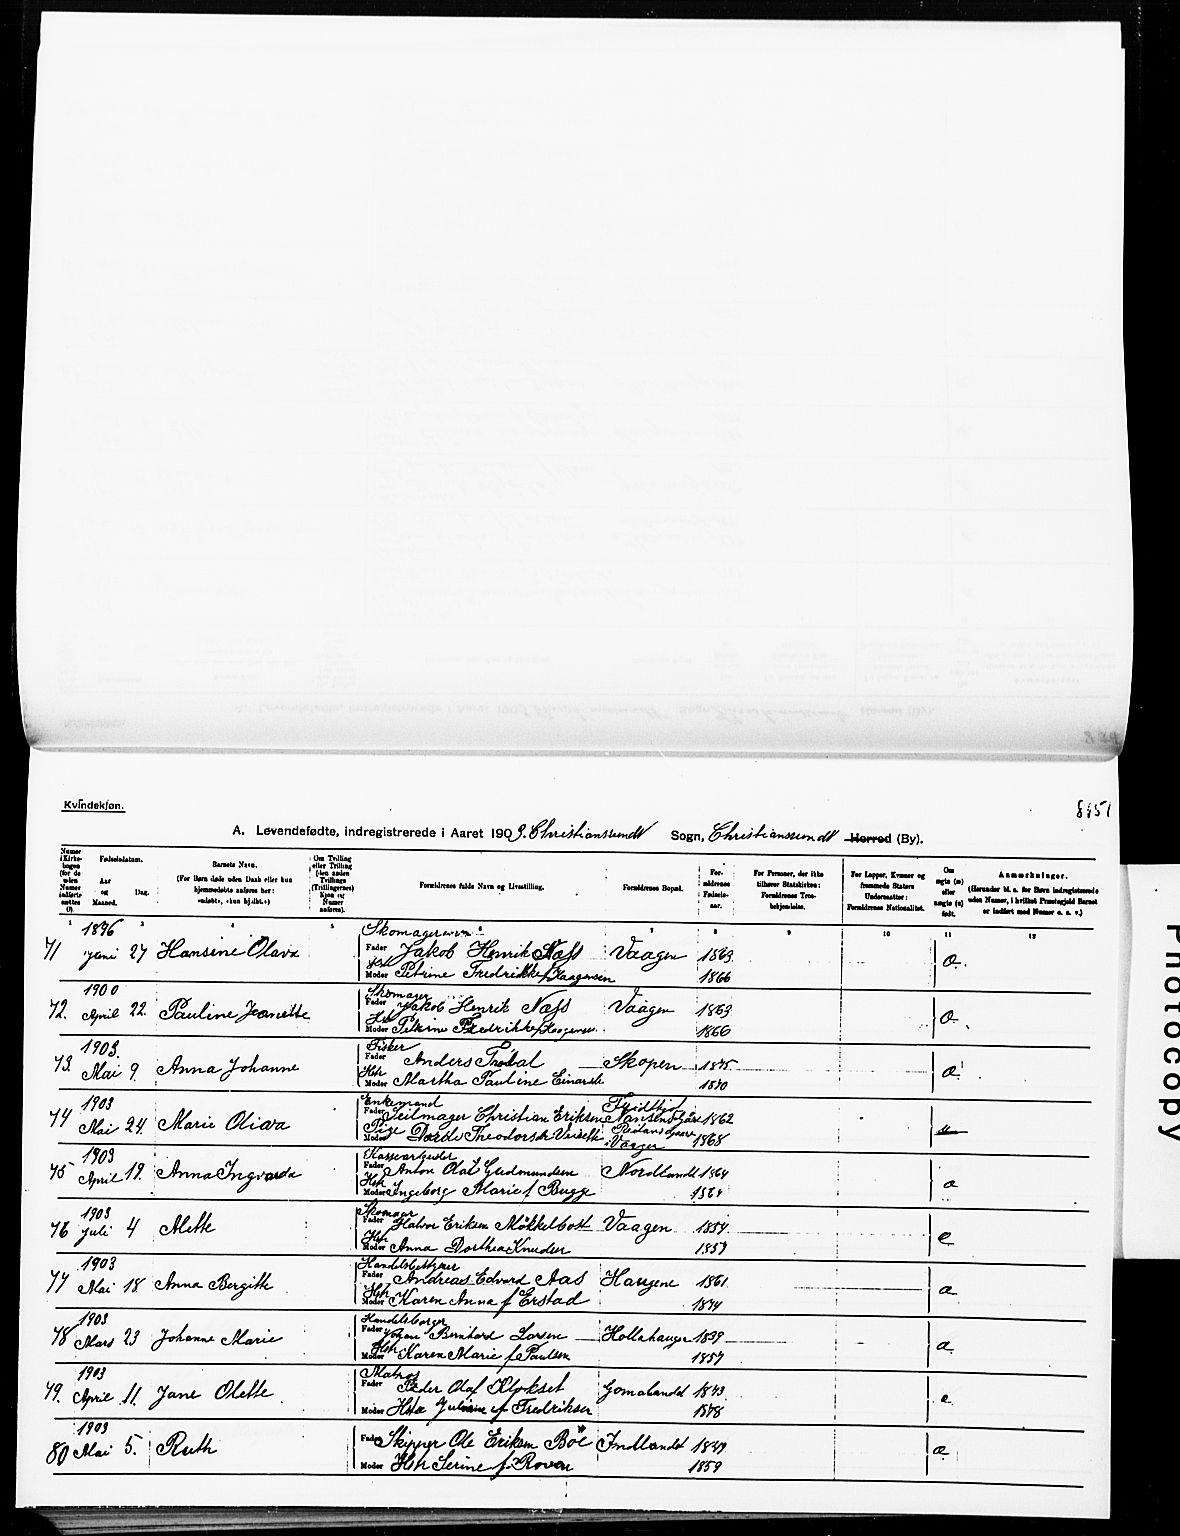 Kvindekjøn.
8451
A. Levendefødte, indregistrerede i Aaret 1903. Christianssundt Sogn, Christianssundt Herred (By).
Numer i Kirkebogen (for de uden Numer indførte sættes 0)
Fødselsdatum. Aar og Maaned. Dag.
Barnets Navn. (For Børn døde uden Daab eller kun hjemmedøbte anføres her: «udøbt», «kun hj.dbt.»)
Om Tvilling eller Trilling (den anden Tvillings (Trillingernes) Kjøn og Numer anføres).
Forældrenes fulde Navn og Livsstilling.
Forældrenes Bopæl.
Forældrenes Fødselsaar.
For Personer, der ikke tilhører Statskirken: Forældrenes Trosbekjendelse.
For Lapper, Kvæner og fremmede Staters Undersaatter: Forældrenes Nationalitet.
Om ægte (æ) eller uægte (u) født.
Anmerkninger. (Herunder bl. a. for Børn indregistrerede uden Numer, i hvilket Præstegjeld Barnet er indført med Numer o. s. v.)
1896 Skomager
71 Juni 27 Hansine Olava Fader Jakob Henrik Næss Vaagen 1863 æ.
Moder Petrine Fredrikke f. Haagensen 1866
1900 Skomager
72. April 22. Pauline Jeanette Fader Jakob Henrik Næss Vaagen 1863 æ.
Hst Moder Petrine Fredrikke f Haagensen 1866
1903. Fisker
73. Mai 9. Anna Johanne Fader Anders Skopen 1875 æ
Hst Moder Martha Pauline Einarsd. 1870
1903 Enkemand Fridthjof
74 Mai 24. Marie Oliava Fader Seilmager Christian Eriksen Nansensgade 1862 u
Pige Moder Dorthe Theodorsk Vaagen 1868
1903
75 April 19. Anna Ingvarda Fader Anton Olai Gudmundsen Nordlandt 1864 æ
Hst Moder Ingeborg Marie f Bugge 1864
1903
76 Juli 4 Alette Fader Halvor Eriksen Møkkelbost Vaagen 1854 æ
Hst Moder Anna Dorthea Knudsen 1857
1903 Handelsbetjener
77 Mai 18. Anna Bergitte Fader Andreas Edvard Aas Haugene 1861 æ
Hst Moder Karen Anna f Erstad 1874
1903 Handelsborger
78 Mars 23 Johanne Marie Fader Johan Bernhard Larsen Hollahaugen 1839 æ
Hst Moder Karen Marie f Paulsen 1857
1903 Matros
79. April 11. Jane Olette Fader Peder Olaf Klokset Gomalandet 1873 æ
Moder Hst Juliane f Fredriksen 1878
1903
80 Mai 5. Ruth Fader Skipper Ole Eriksen Böe Indlandet 1849 æ
Moder Hst Serine f. Roven 1859
Photocopy